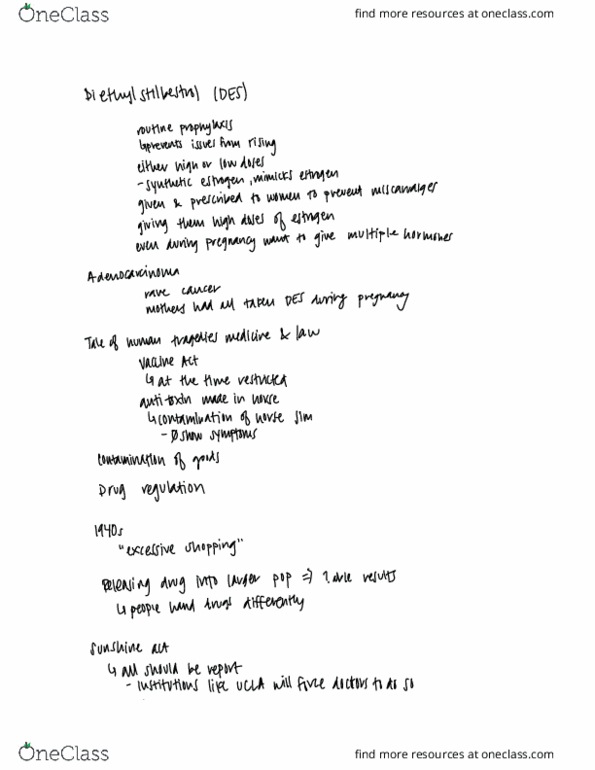 OneClass
find more resources at oneclass.com
Diethylstilbestrol (DES)
routine prophylaxis
↳prevents issues from rising
either high or low doses
- synthetic estrogen, mimicks estrogen
given & prescribed to women to prevent miscarriages
giving them high doses of estrogen
even during pregnancy want to give multiple hormones
Adenocarcinoma
rare cancer
mothers had all taken DES during pregnancy
Tale of human tragedies medicine & law
Vaccine Act
↳ at the time restricted
anti-toxin made in horse
↳contamination of horse
- Ø show symptoms
contamination of goods
Drug regulation
1940s
"excessive shopping"
Releasing drug into larger pop ⇒ results
↳ people hand drugs differently
Sunshine act
↳ all should be report
- institutions like UCLA will force doctors to do so
OneClass
find more resources at oneclass.com